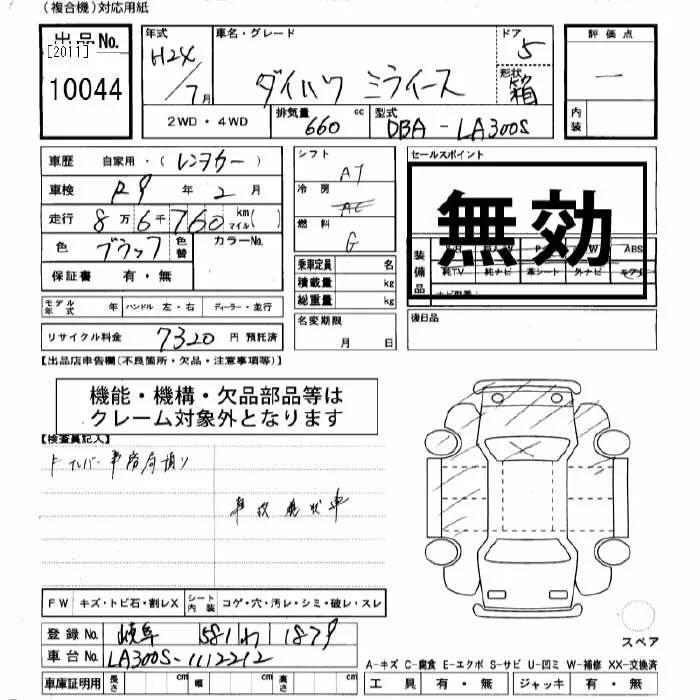 (複合機)対応用紙
出品No. [2011] 10044
年式 H24/7月
車名・グレード ダイハツ ミライース
ドア 5
形状 箱
評価点 ―
内装
2WD・4WD
排気量 660 cc
型式 DBA-LA300S
車歴 自家用・(レンタカー)
車検 R9年2月
走行 8万6千760 km マイル( )
色 ブラック 色替
カラーNo.
保証書 有・無
モデル年式 年 ハンドル 左・右 ディーラー・並行
リサイクル料金 7320円 預託済
シフト AT
冷房 AC
燃料 G
乗車定員 名
積載量 kg
総重量 kg
名変期限 月 日
セールスポイント
無効
装備品 ABS
純TV 純ナビ 革シート 外ナビ
後日品
【出品店申告欄(不良箇所・欠品・注意事項等)】
機能・機構・欠品部品等は
クレーム対象外となります
【検査員記入】
事故現状車
FW キズ・トビ石・割レX シート内装 コゲ・穴・汚レ・シミ・破レ・スレ
登録No. 岐阜 581 わ 1879
車台No. LA300S-1112212
車庫証明用 長さ cm 幅 cm 高さ cm
スペア
A-キズ C-腐食 E-エクボ S-サビ U-凹ミ W-補修 XX-交換済
工具 有・無 ジャッキ 有・無